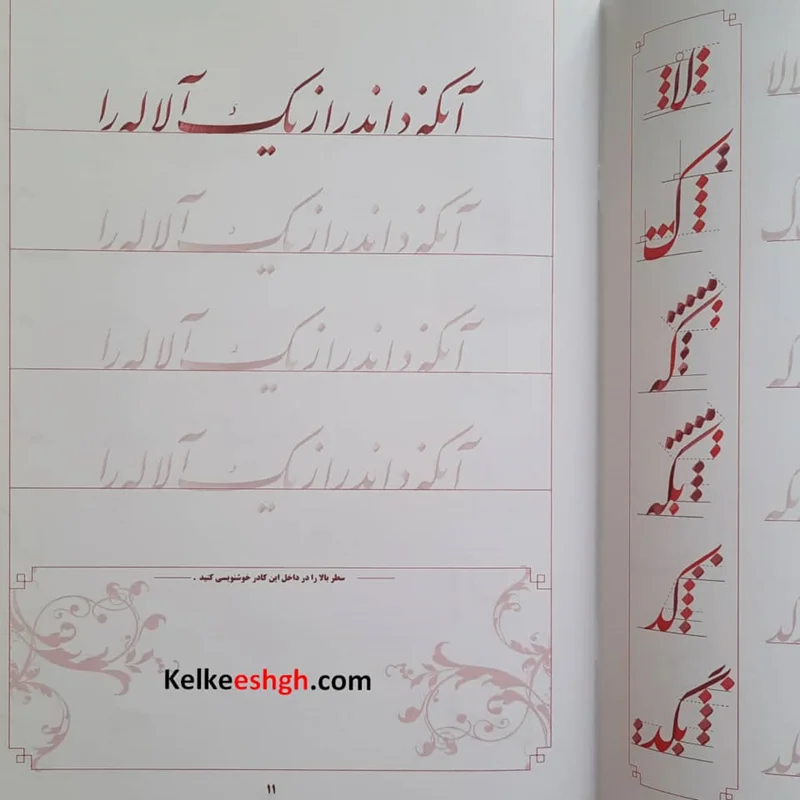 آنکه داند راز یک آلاله را
آنکه داند راز یک آلاله را
آنکه داند راز یک آلاله را
آنکه داند راز یک آلاله را
سطر بالا را در داخل این کادر خوشنویسی کنید .
Kelkeeshgh.com
۱۱
لا
که
بکه
کد